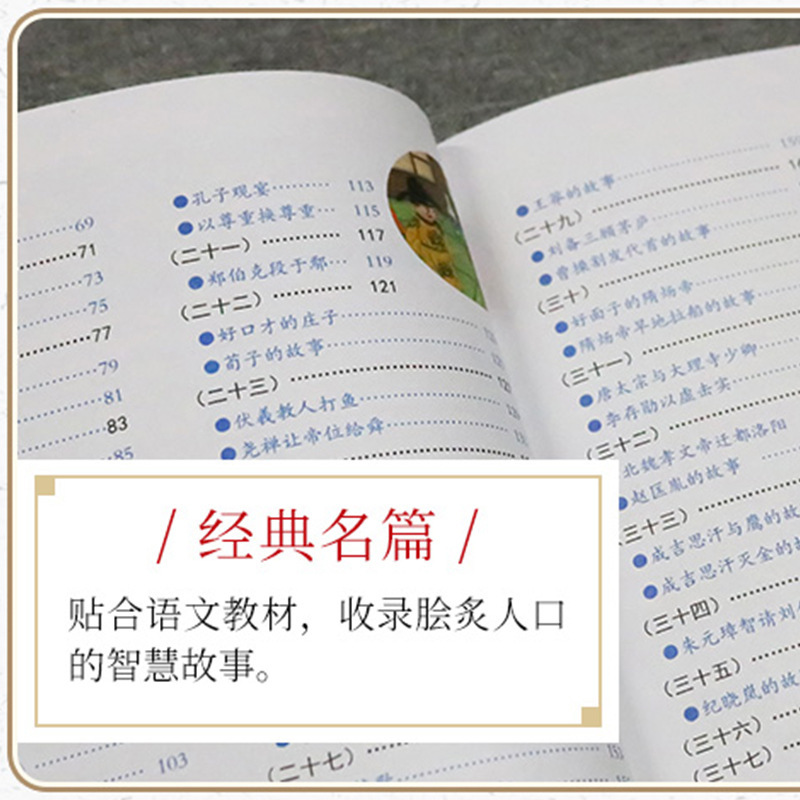 69
71
73
75
77
79
81
83
85
103
孔子观宴 113
以尊重换尊重 115
(二十一) 117
郑伯克段于鄢 119
(二十二) 121
好口才的庄子
荀子的故事
(二十三)
伏羲教人打鱼
尧禅让帝位给舜
(二十七)
王莽的故事
(二十九)
刘备三顾茅庐
曹操割发代首的故事
(三十)
好面子的隋炀帝
隋炀帝旱地拉船的故事
(三十一)
唐太宗与大理寺少卿
李存勖以虚击实
(三十二)
北魏孝文帝迁都洛阳
赵匡胤的故事
(三十三)
成吉思汗与鹰的故
成吉思汗灭金的故
(三十四)
朱元璋智请刘
(三十五)
纪晓岚的故
(三十六)
(三十七)
/ 经典名篇 /
贴合语文教材，收录脍炙人口
的智慧故事。